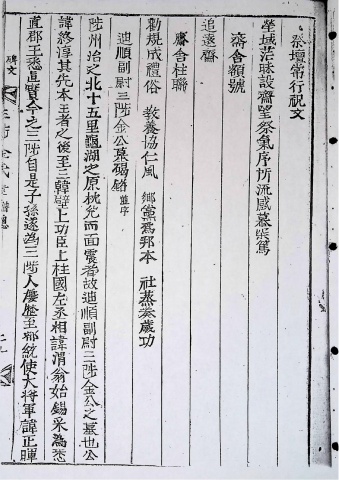 祭壇常行祝文
塋域茫昧設齋望祭氣序所流感慕深篤
齋舍額號
追遠齋
齋舍柱聯
勸規成禮俗 教養協仁風 鄉黨爲邦本 社蒸泰歲功
迪順副尉三陟金公墓碣銘 並序
陟州治之北十五里瓢湖之原枕兌而面震者故迪順副尉三陟金公之墓也公
諱終淳其先本王者之後至三韓壁上功臣上柱國左丞相諱渭翁始錫采爲悉
直郡王悉直實今之三陟自是子孫遂爲三陟人屢歷至都統使大將軍諱正暉
碑文